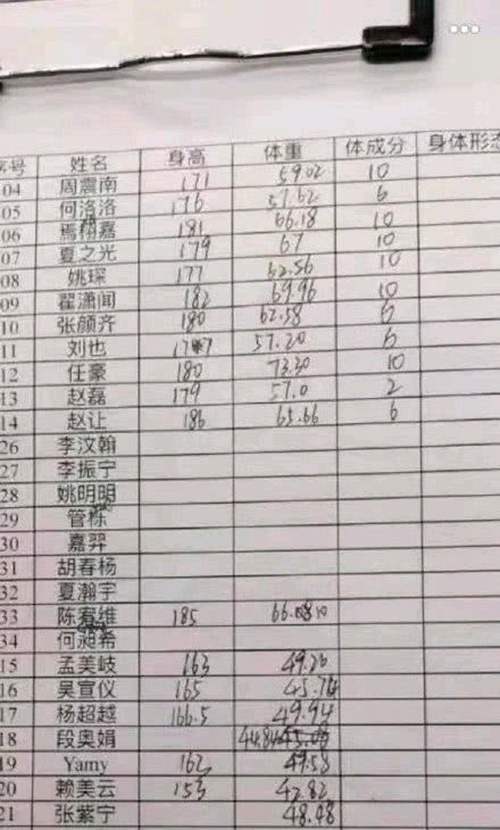 序号 姓名 身高 体重 体成分 身体形态
04 周震南 171 59.02 10
05 何洛洛 176 57.62 6
06 焉栩嘉 181 66.18 10
07 夏之光 179 67 10
08 姚琛 177 62.56 10
09 翟潇闻 182 69.96 10
10 张颜齐 180 62.58 6
11 刘也 177 57.20 6
12 任豪 180 73.30 10
13 赵磊 179 57.0 2
14 赵让 186 65.66 6
26 李汶翰
27 李振宁
28 姚明明
29 管栎
30 嘉羿
31 胡春杨
32 夏瀚宇
33 陈宥维 185
34 何昶希
15 孟美岐 163 49.20
16 吴宣仪 165 45.74
17 杨超越 166.5 49.94
18 段奥娟 44.84
19 Yamy 162 49.58
20 赖美云 153 42.82
21 张紫宁 48.48